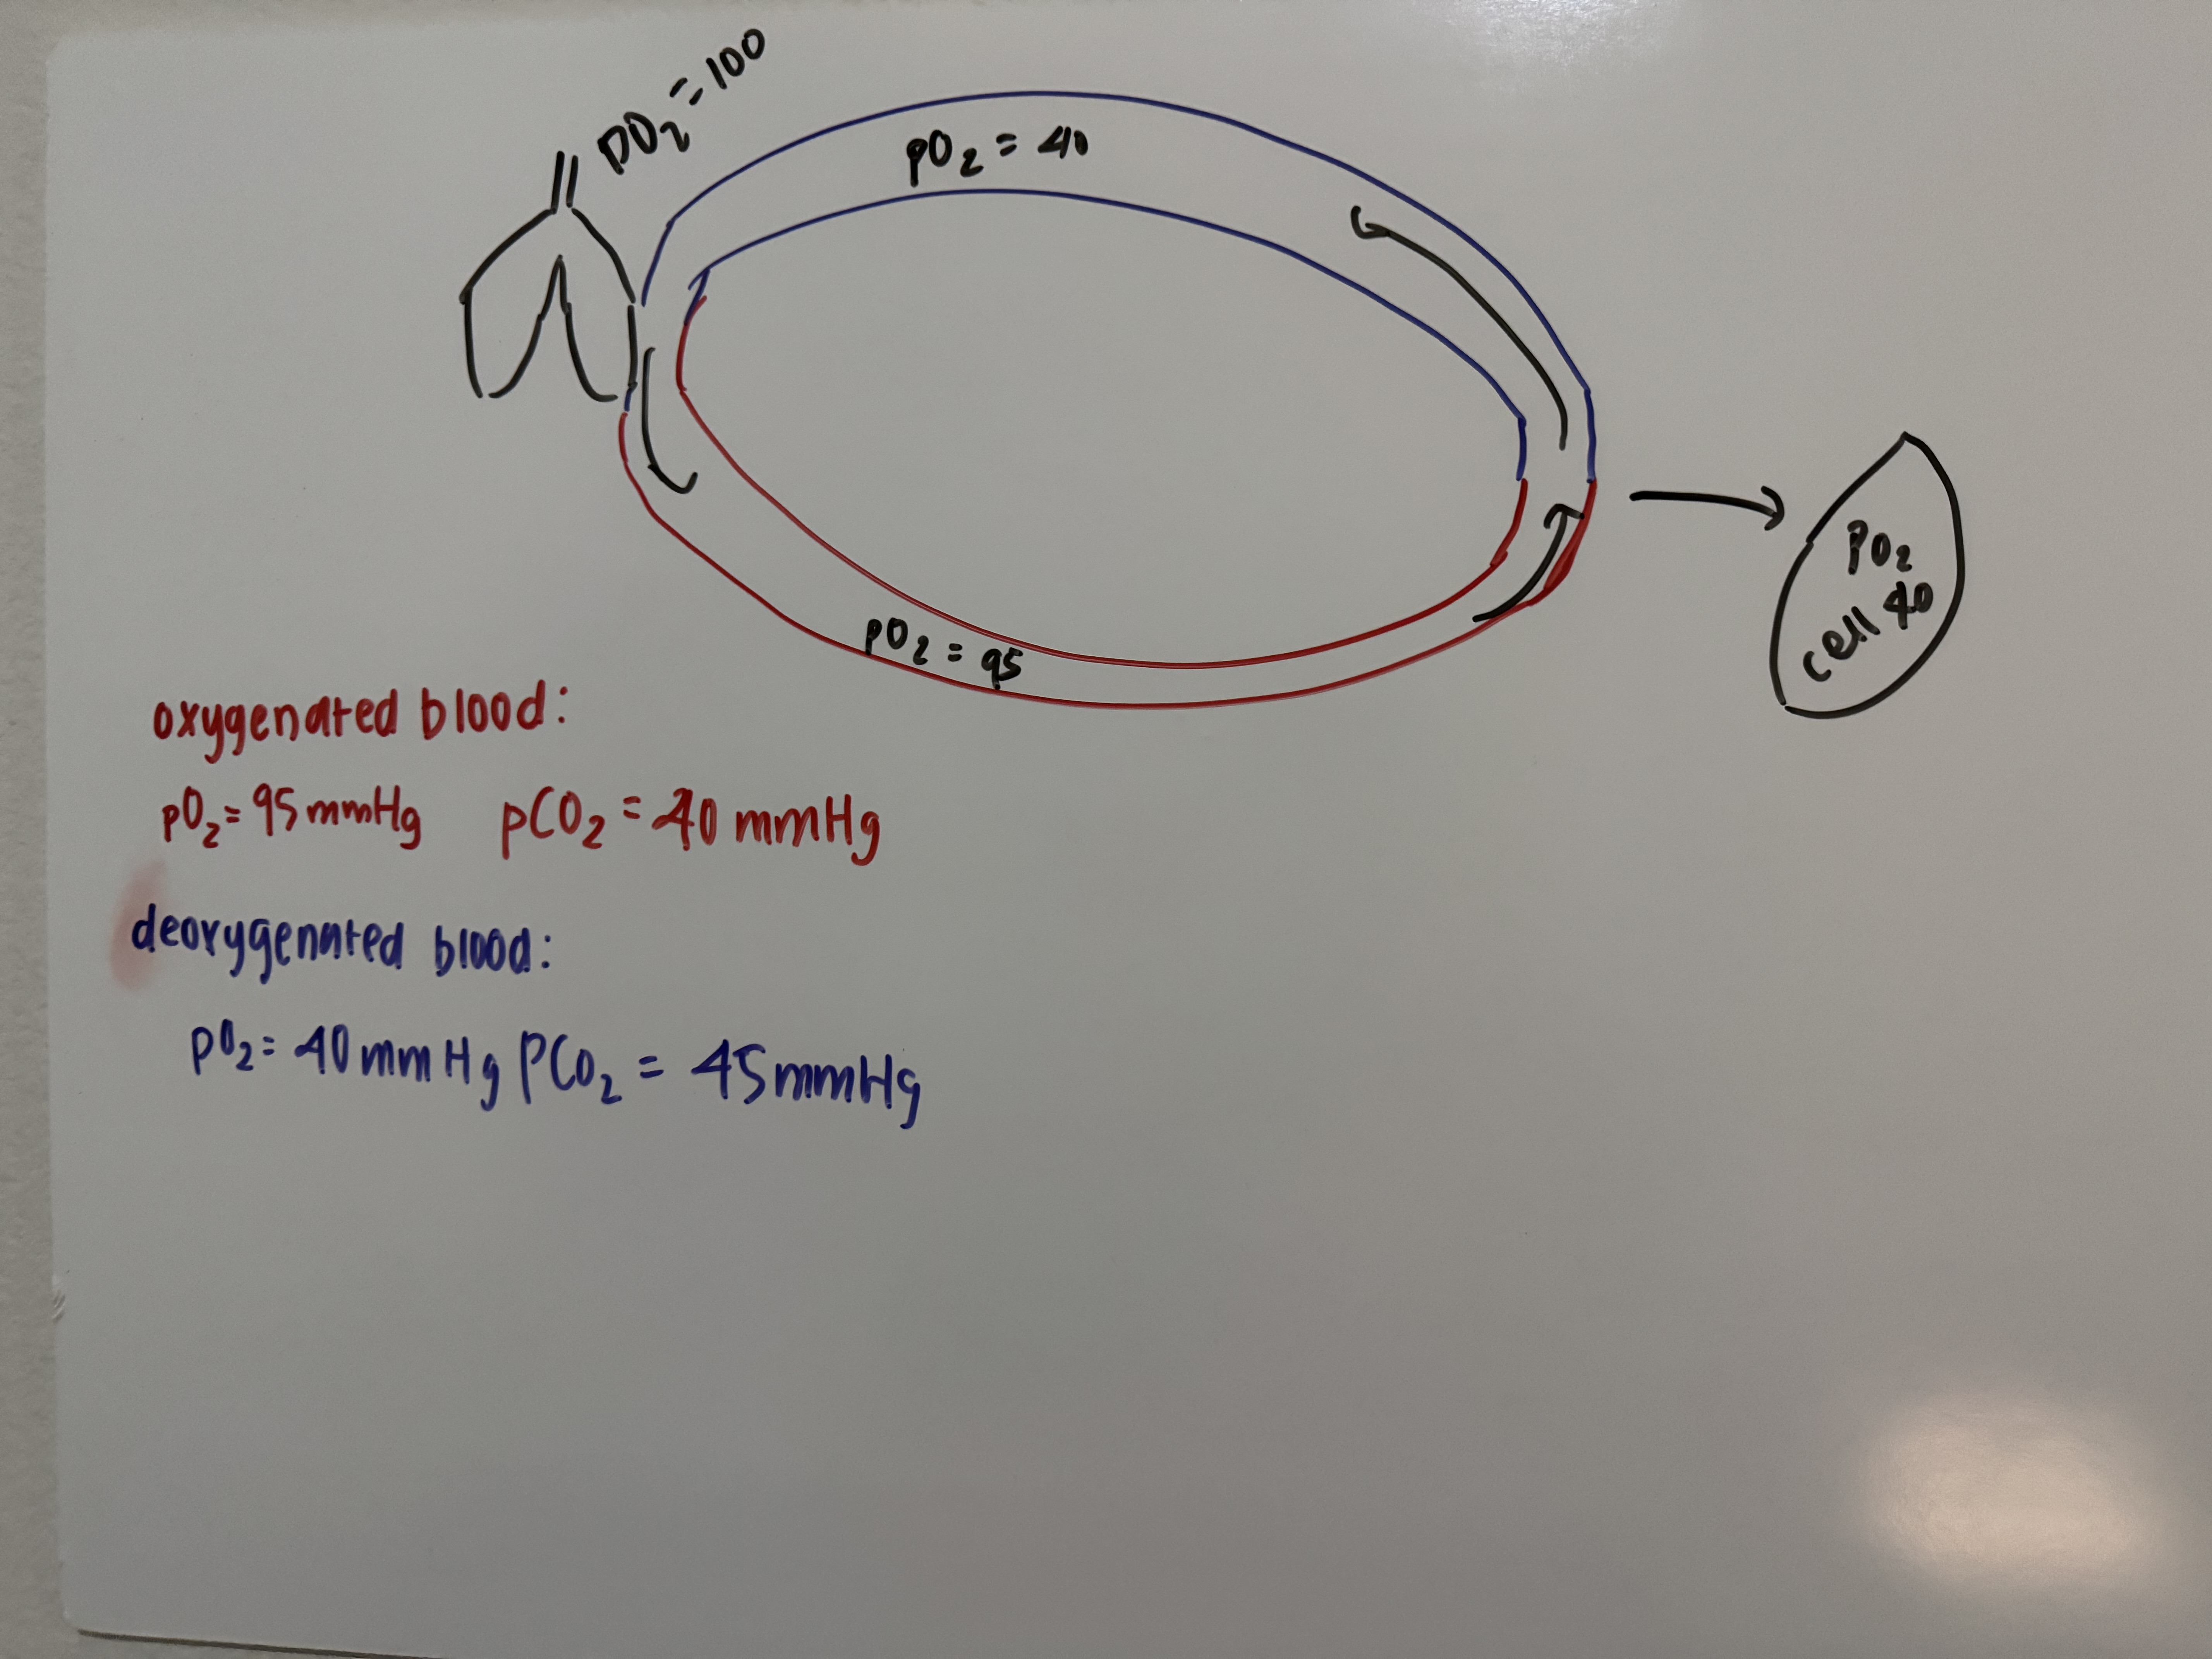 pO₂ = 100
pO₂ = 40
PO₂
cell 40
pO₂ = 95
oxygenated blood:
pO₂ = 95 mmHg pCO₂ = 40 mmHg
deoxygenated blood:
pO₂ = 40 mmHg PCO₂ = 45 mmHg